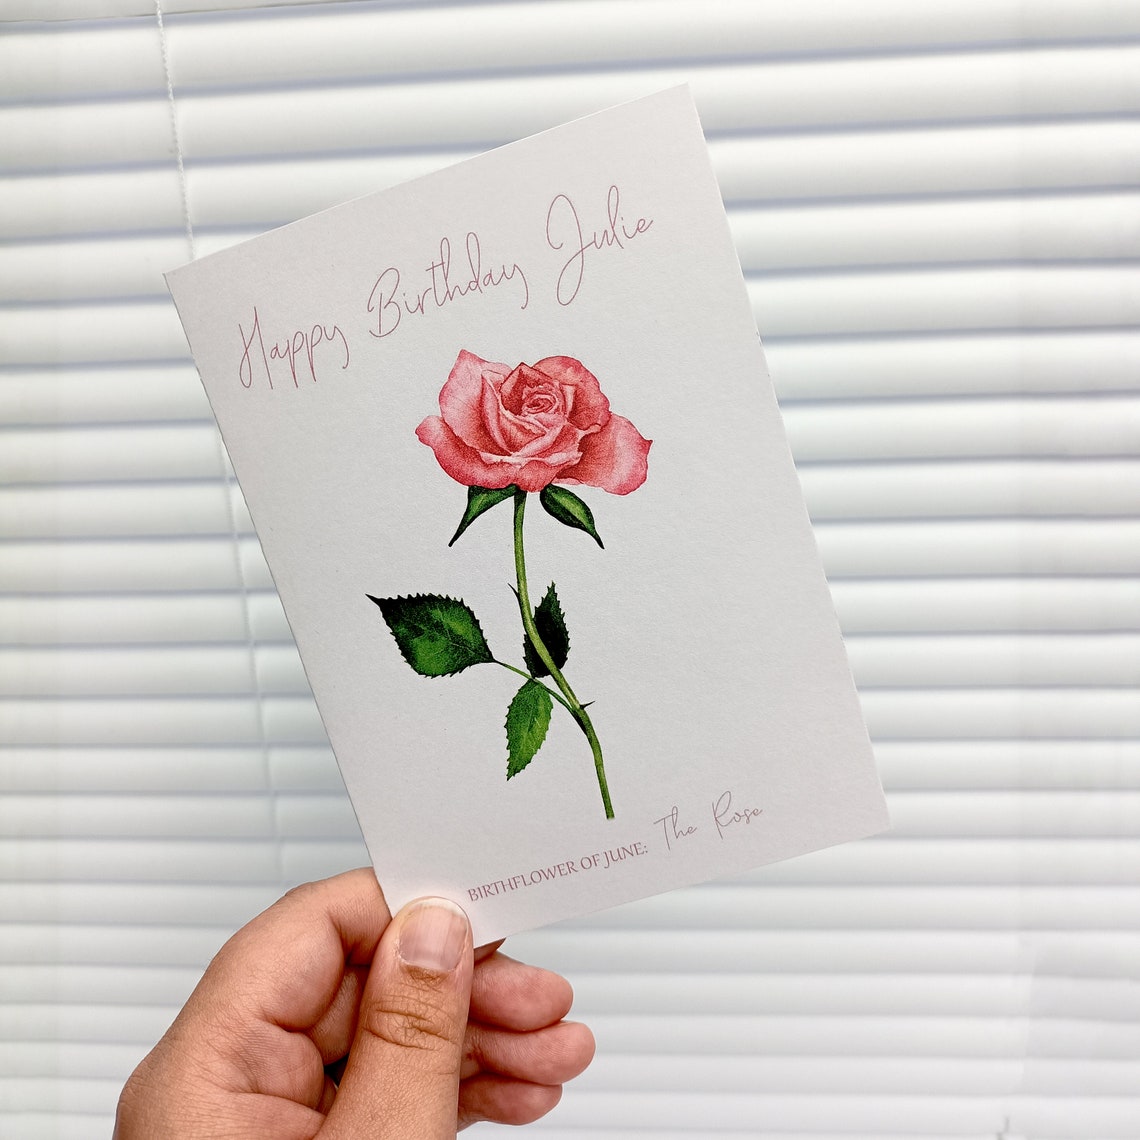 Happy Birthday Julie
BIRTHFLOWER OF JUNE: The Rose